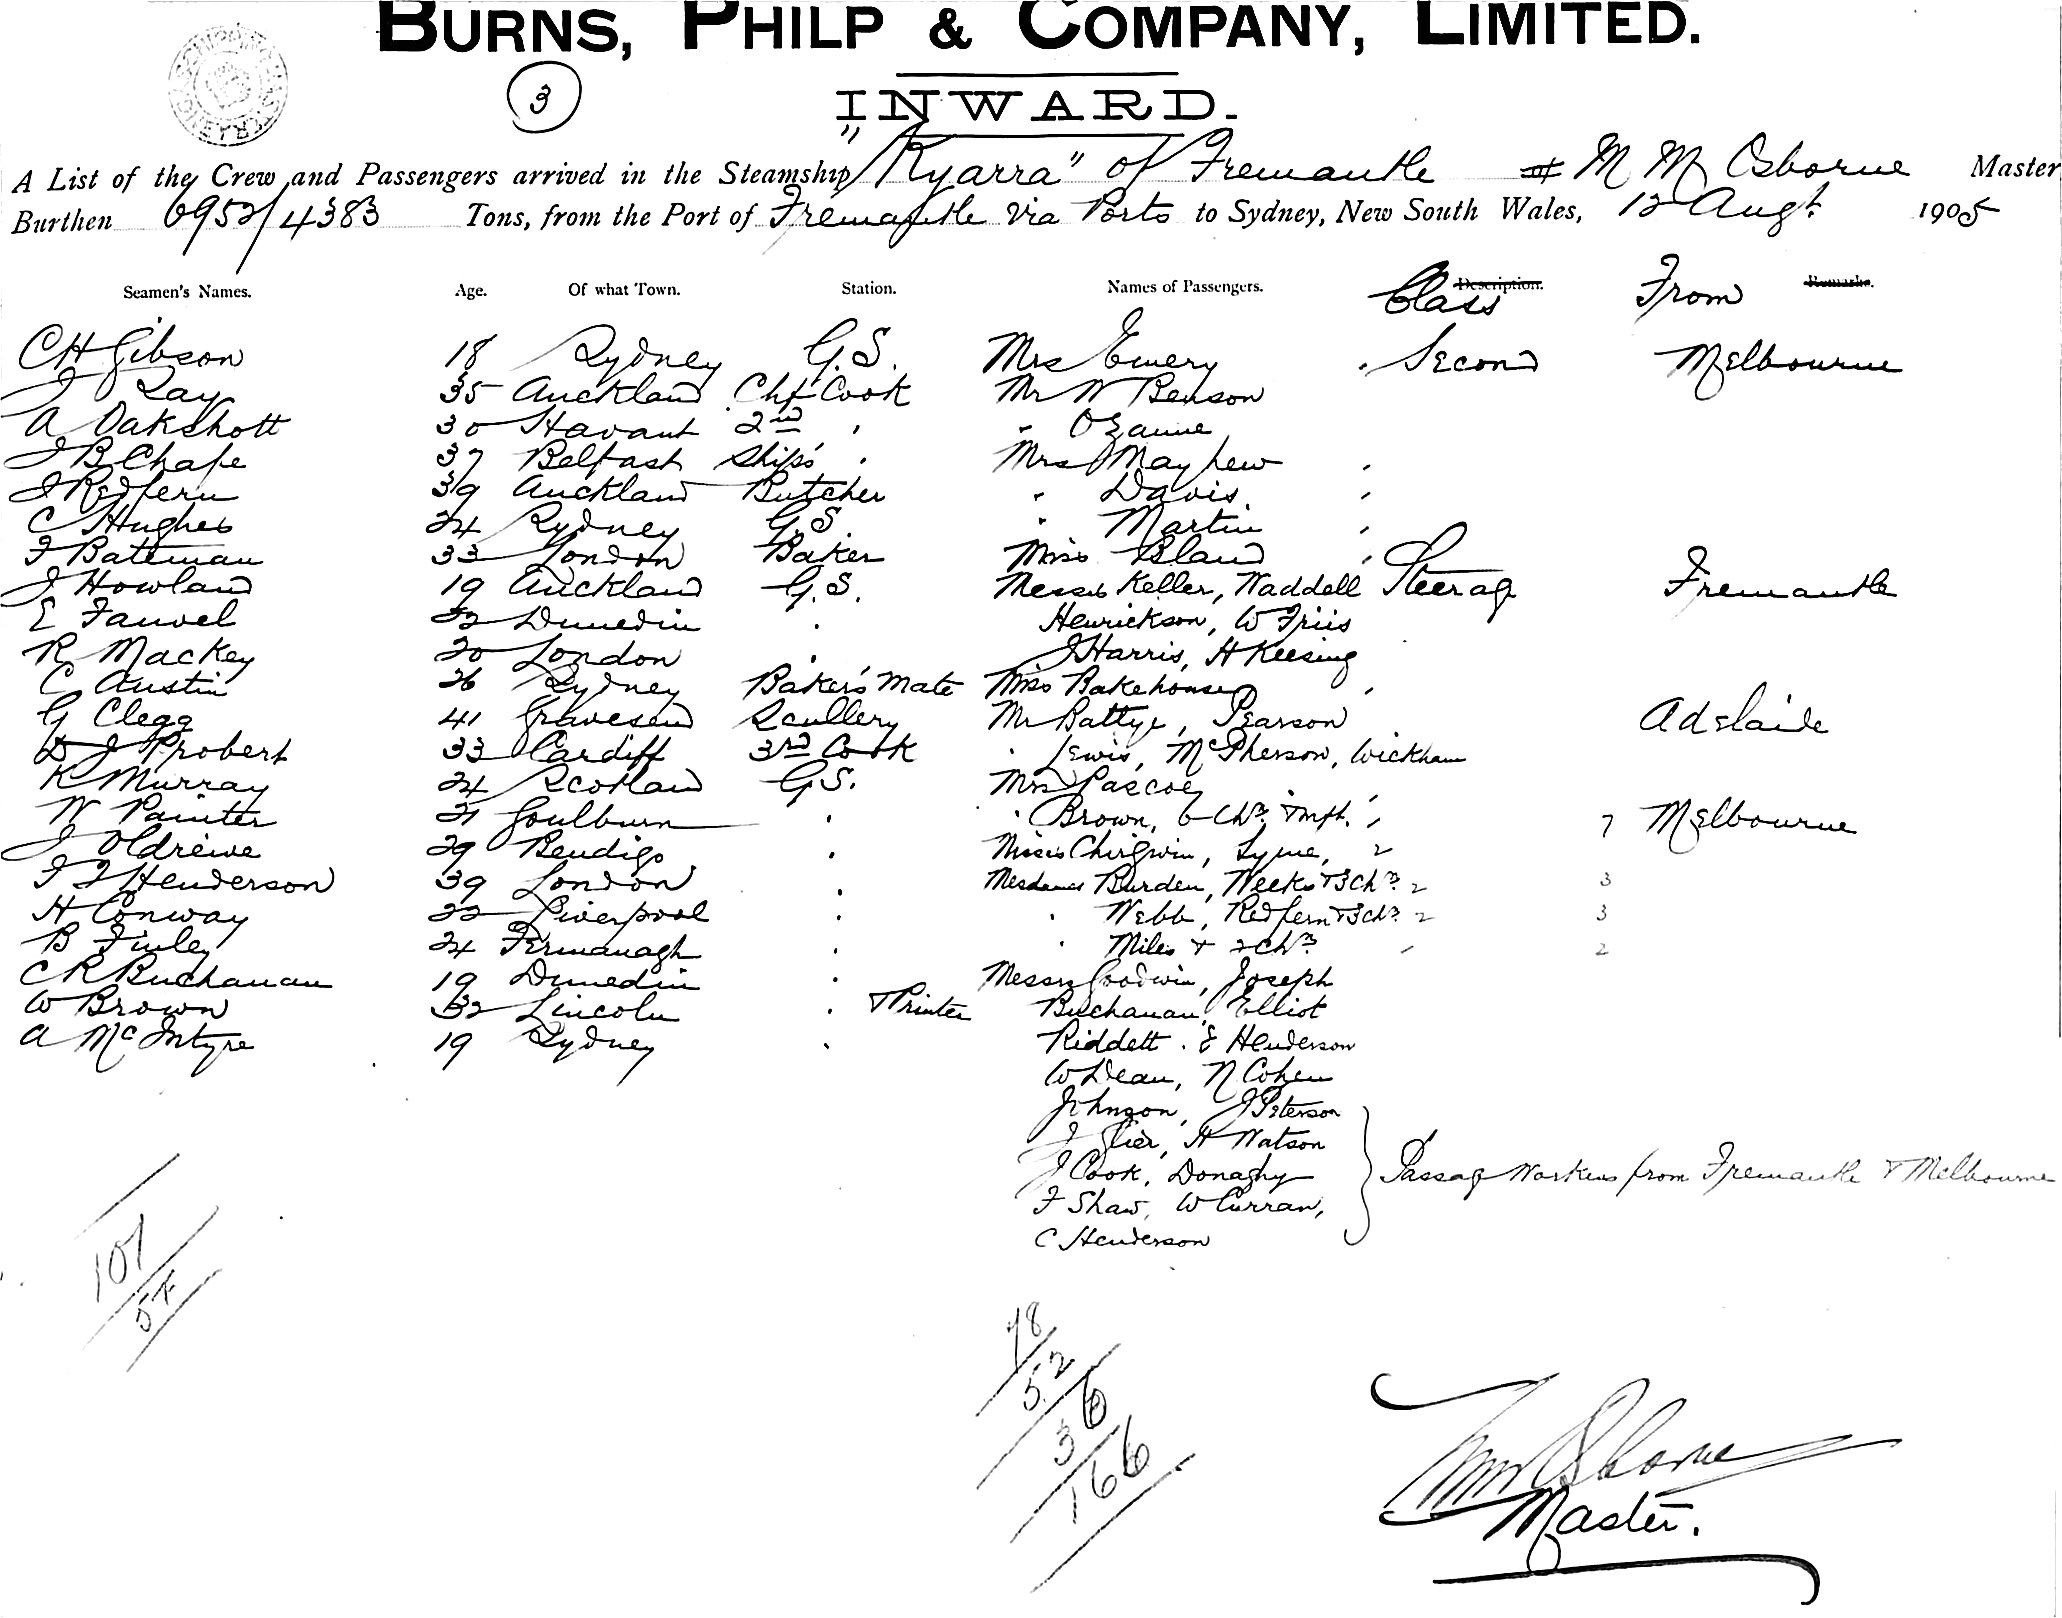 BURNS, PHILP & COMPANY, LIMITED.
3
INWARD.
A List of the Crew and Passengers arrived in the Steamship "Kyarra" of Fremantle M M Osborne Master
Burthen 6952/4383 Tons, from the Port of Fremantle via Ports to Sydney, New South Wales, 12 Augt. 1905
Seamen's Names. Age. Of what Town. Station. Names of Passengers. Description. Class From Remarks.
C H Gibson 18 Sydney G.S. Mrs Emery . Second Melbourne
J Ray 35 Auckland Chf Cook Mr W Benson
A Oakshott 30 Havant 2nd " " Ozanne
J B Chape 37 Belfast Ships " Mrs Mayhew "
J Redfern 39 Auckland Butcher " Davis "
C Hughes 24 Sydney G.S. " Martin "
F Bateman 33 London Baker Miss Bland "
J Howland 19 Auckland G.S. Messrs Keller, Waddell Steerage Fremantle
E Fauvel 22 Dunedin " Henrickson, W Friis
R Mackey 20 London " J Harris, H Keesing
C Austin 26 Sydney Baker's Mate Miss Bakehouse "
G Clegg 41 Gravesend Scullery Mr Battye, Pearson Adelaide
D J Probert 33 Cardiff 3rd Cook " Lewis, McPherson, Wickham
K Murray 24 Scotland G.S. Mrs Pascoe "
W Painter 21 Goulburn " " Brown, 6 Chn. & Inft. " 7 Melbourne
J Oldreive 29 Bendigo " Misses Chirgwin, Lyme, 2
F J Henderson 39 London " Mesdames Burden, Weeks & 3 Chn. 2 3
H Conway 22 Liverpool " " Webb, Redfern & 3 Chn. 2 3
B Finley 24 Fermanagh " " Miles & 2 Chn. " 2
C R Buchanan 19 Dunedin " Messrs Goodwin, Joseph
W Brown 32 Lincoln " & Printer Buchanan, Elliot
A McIntyre 19 Sydney " Riddett . E Henderson
W Dean, N Cohen
Johnson, J Peterson
J Glier, H Watson
J Cook, Donaghy Passage Workers from Fremantle & Melbourne
F Shaw, W Curran,
C Henderson
107
54
78
52
36
166
Master.